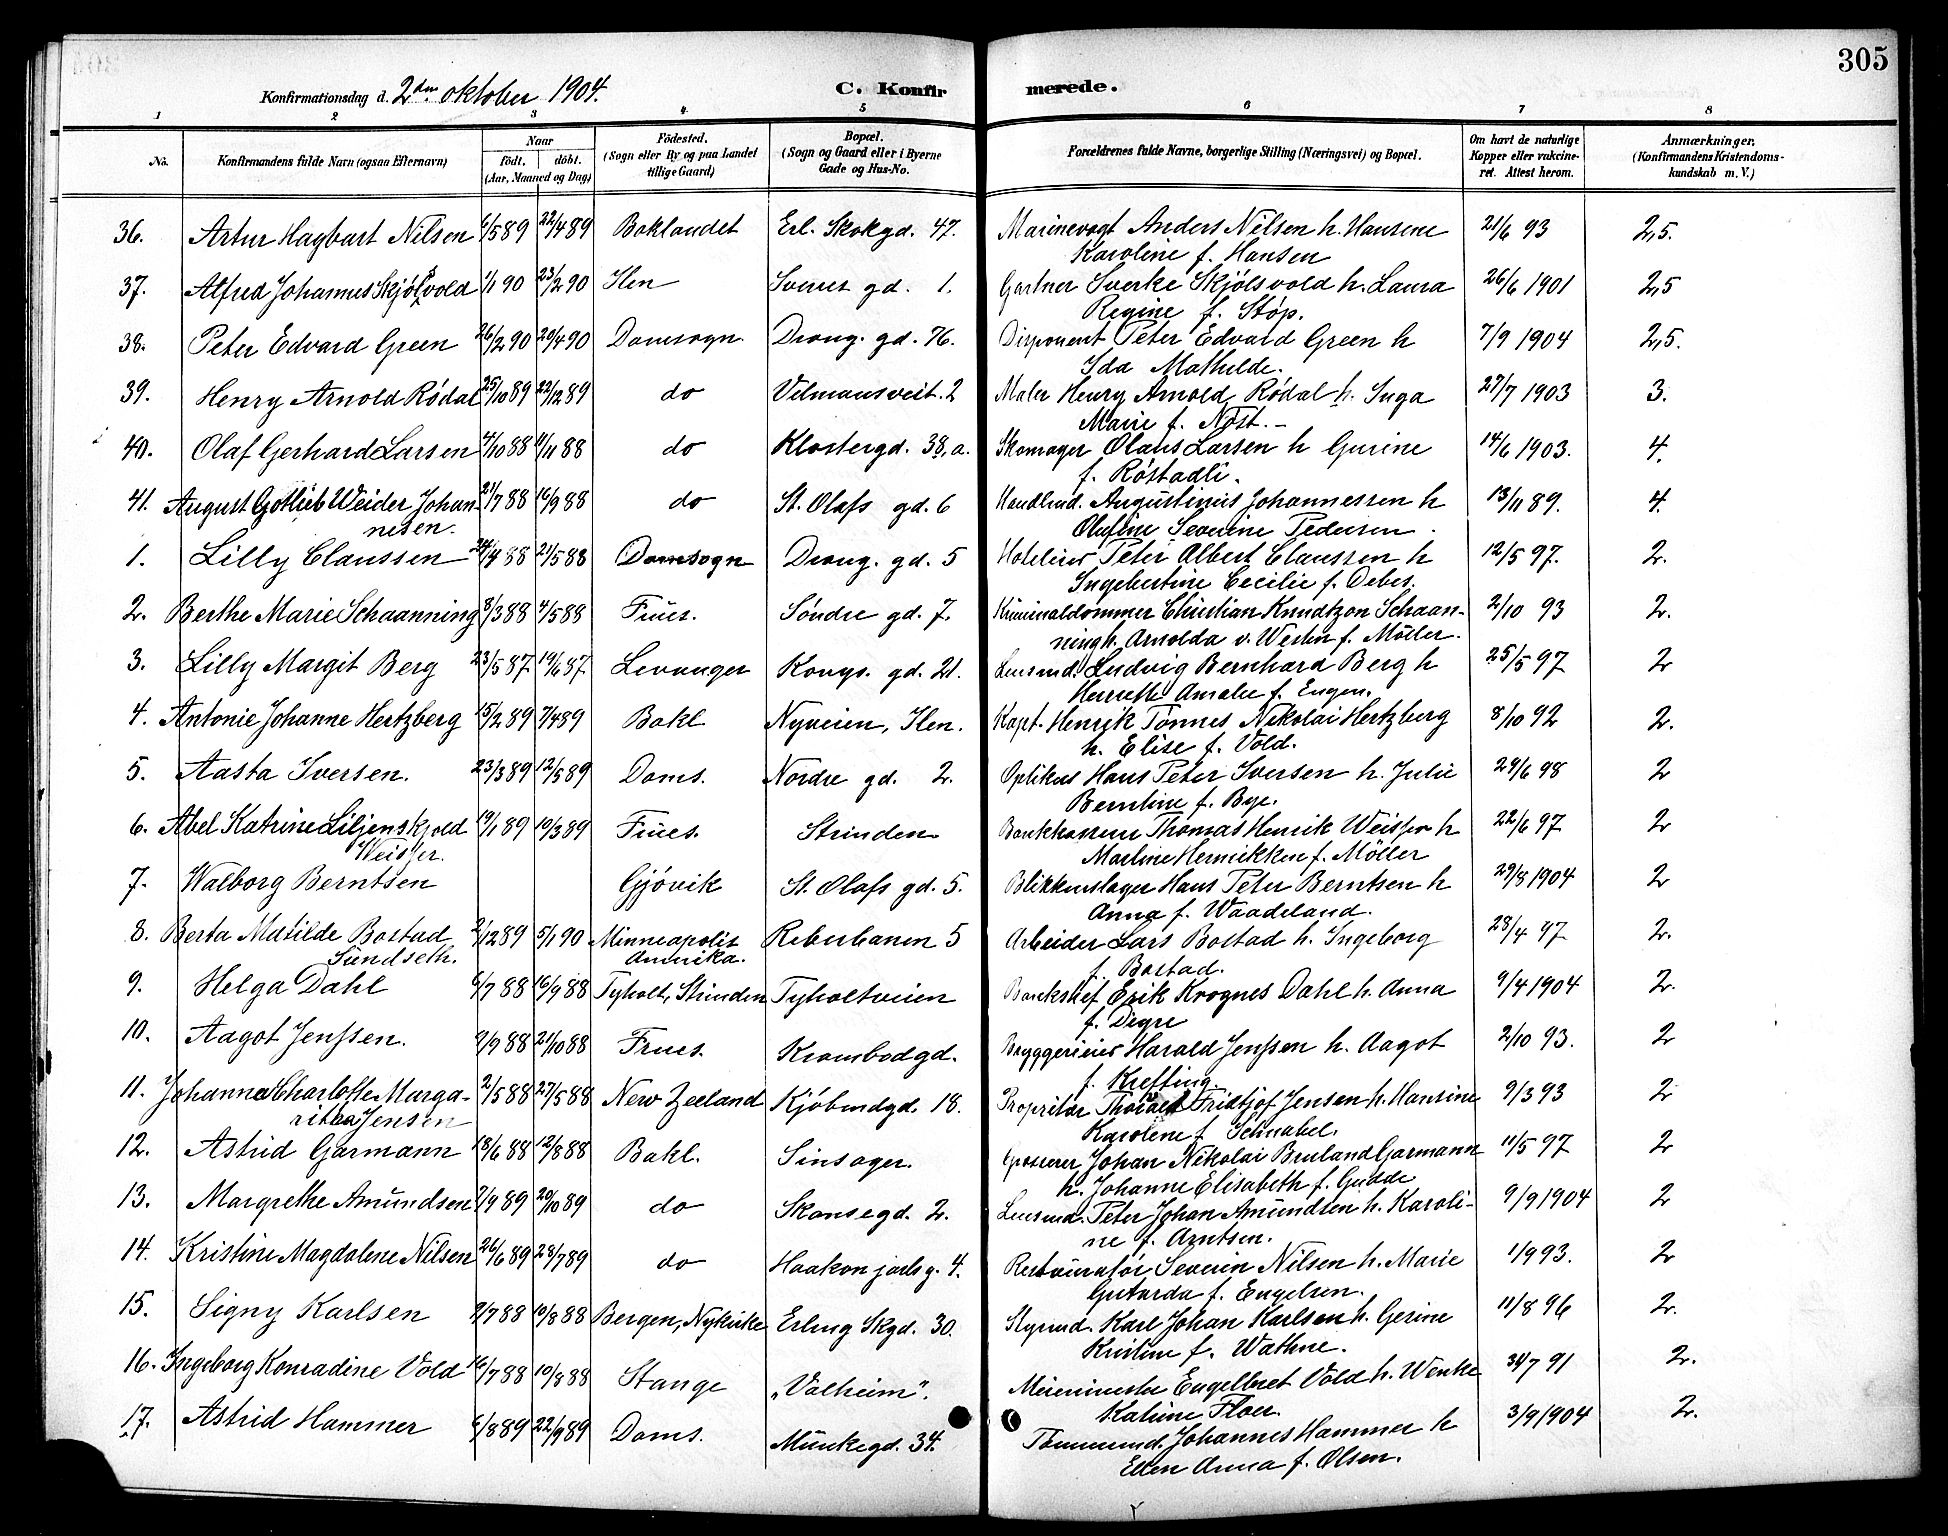 305
Konfirmationsdag d. 2den oktober 1904.
C. Konfirmerede.
1 2 3 4 5 6 7 8
No. Konfirmandens fulde Navn (ogsaa Efternavn) Naar født, døbt. (Aar, Maaned og Dag) Fødested. (Sogn eller By og paa Landet tillige Gaard) Bopæl. (Sogn og Gaard eller i Byerne Gade og Hus-No. Forældrenes fulde Navne, borgerlige Stilling (Næringsvei) og Bopæl. Om havt de naturlige Kopper eller vakcineret. Attest herom. Anmærkninger. (Konfirmandens Kristendomskundskab m. V.)
36. Artur Hagbart Nilsen 6/5 89 22/4 89 Baklandet Erl. Skokgd. 47. Marinevogt Anders Nilsen h. Hansine 21/6 93 2,5.
Karoline f. Hansen
37. Alfred Johannes Skjølsvold 1/1 90 23/2 90 Ilen Sverres gd. 1. Gartner Sverke Skjølsvold h. Laura 26/6 1901 2,5
Regine f. Støp.
38. Peter Edvard Green 26/2 90 20/4 90 Domsogn Drong. gd. 76. Disponent Peter Edvard Green h 7/9 1904 2,5.
Ida Mathilde.
39. Henry Arnold Rødal 25/10 89 22/12 89 do Velmansveit. 2 Maler Henry Arnold Rødal h. Inga 27/7 1903 3.
Marie f. Nøst.
40. Olaf Gerhard Larsen 4/10 88 11/11 88 do Klostergd. 38, a. Skomager Olaus Larsen h Gurine 14/6 1903. 4.
f. Røstadli.
41. August Gotlieb Weider Johan- 21/7 88 16/9 88 do St. Olafs gd. 6 Handlmd. Augustinus Johannessen h 13/11 89. 4.
nesen. Olufine Severine Pedersen
1. Lilly Claussen 24/4 88 21/5 88 Domsogn Drong. gd. 5 Hoteleier Peter Albert Claussen h 12/5 97. 2.
Ingebertine Cecilie f. Debes.
2. Berthe Marie Schaanning 8/3 88 4/5 88 Frues. Søndre gd. 7. Kriminaldommer Christian Knudtzon Schaan- 2/10 93 2.
ning h. Arnolda v. Westen f. Möller.
3. Lilly Margit Berg 23/5 87 19/6 87. Levanger Kongs. gd. 21. Lensmd. Ludvig Bernhard Berg h 25/5 97 2
Henriette Amalie f. Eugen.
4. Antonie Johanne Hertzberg 15/2 89 7/4 89 Bakl Nyveien, Ilen. Kapt. Henrik Tønnes Nikolai Hertzberg 8/10 92 2.
h. Elise f. Vold.
5. Aasta Iversen. 23/3 89 12/5 89 Doms. Nordre gd. 2. Optikus Hans Peter Iversen h. Julie 29/6 98 2
Berntine f. Bye.
6. Abel Katrine Liljenskjold 19/1 89 10/3 89 Frues. Strinden Bankkasserer Thomas Henrik Weisser h 22/6 97 2
Weisser. Martine Hennikken f. Möller
7. Walborg Berntsen Gjøvik St. Olafs gd. 5. Blikkenslager Hans Peter Berntsen h 29/8 1904 2
Anna f. Waadeland.
8. Berta Matilde Bostad 2/12 89 5/1 90 Minneapolis Reberbanen 5 Arbeider Lars Bostad h. Ingeborg 28/4 97 2.
Sundseth. Amerika. f. Bostad.
9. Helga Dahl 6/7 88 16/9 88 Tyholt, Strinden Tyholtveien Bankchef Erik Krognes Dahl h. Anna 9/4 1904 2.
f. Digre
10. Aagot Jenssen. 9/9 88 21/10 88 Frues. Krambodgd. Bryggerieier Harald Jenssen h. Aagot 2/10 93. 2
f. Krefting.
11. Johanne Charlotte Marga- 2/5 88 27/5 88 New Zeeland Kjøbmdgd. 18. Propritær Thorald Fridtjof Jensen h. Hansine 9/3 93 2
ritha Jensen Karolene f. Schnabel.
12. Astrid Garmann 18/6 88 12/8 88 Bakl. Sinsager. Grosserer Johan Nikolai Bruland Garmann 11/5 97 2
h. Johanne Elisabeth f. Gudde
13. Margrethe Amundsen 7/9 89 20/10 89 do Skansegd. 2. Lensmd. Peter Johan Amundsen h. Karoli- 9/9 1904 2
ne f. Arntsen.
14. Kristine Magdalene Nilsen 26/6 89 28/7 89 do Haakon jarls g. 4. Restauratør Severin Nilsen h. Marie 1/9 93. 2
Gutarda f. Engelsen.
15. Signy Karlsen 9/7 88 19/8 88 Bergen, Nykirke Erling Skgd. 30. Styrmd. Karl Johan Karlsen h. Gerine 11/8 96 2.
Kristine f. Wathne.
16. Ingeborg Konradine Vold 16/7 88 19/8 88 Stange "Valheim". Meierimester Engelbret Vold h. Wenke 31/7 91 2.
Katrine Floer.
17. Astrid Hammer 6/8 89 22/9 89 Doms. Munkegd. 34. Tømmermd. Johannes Hammer h 3/9 1904 2.
Ellen Anna f. Olsen.